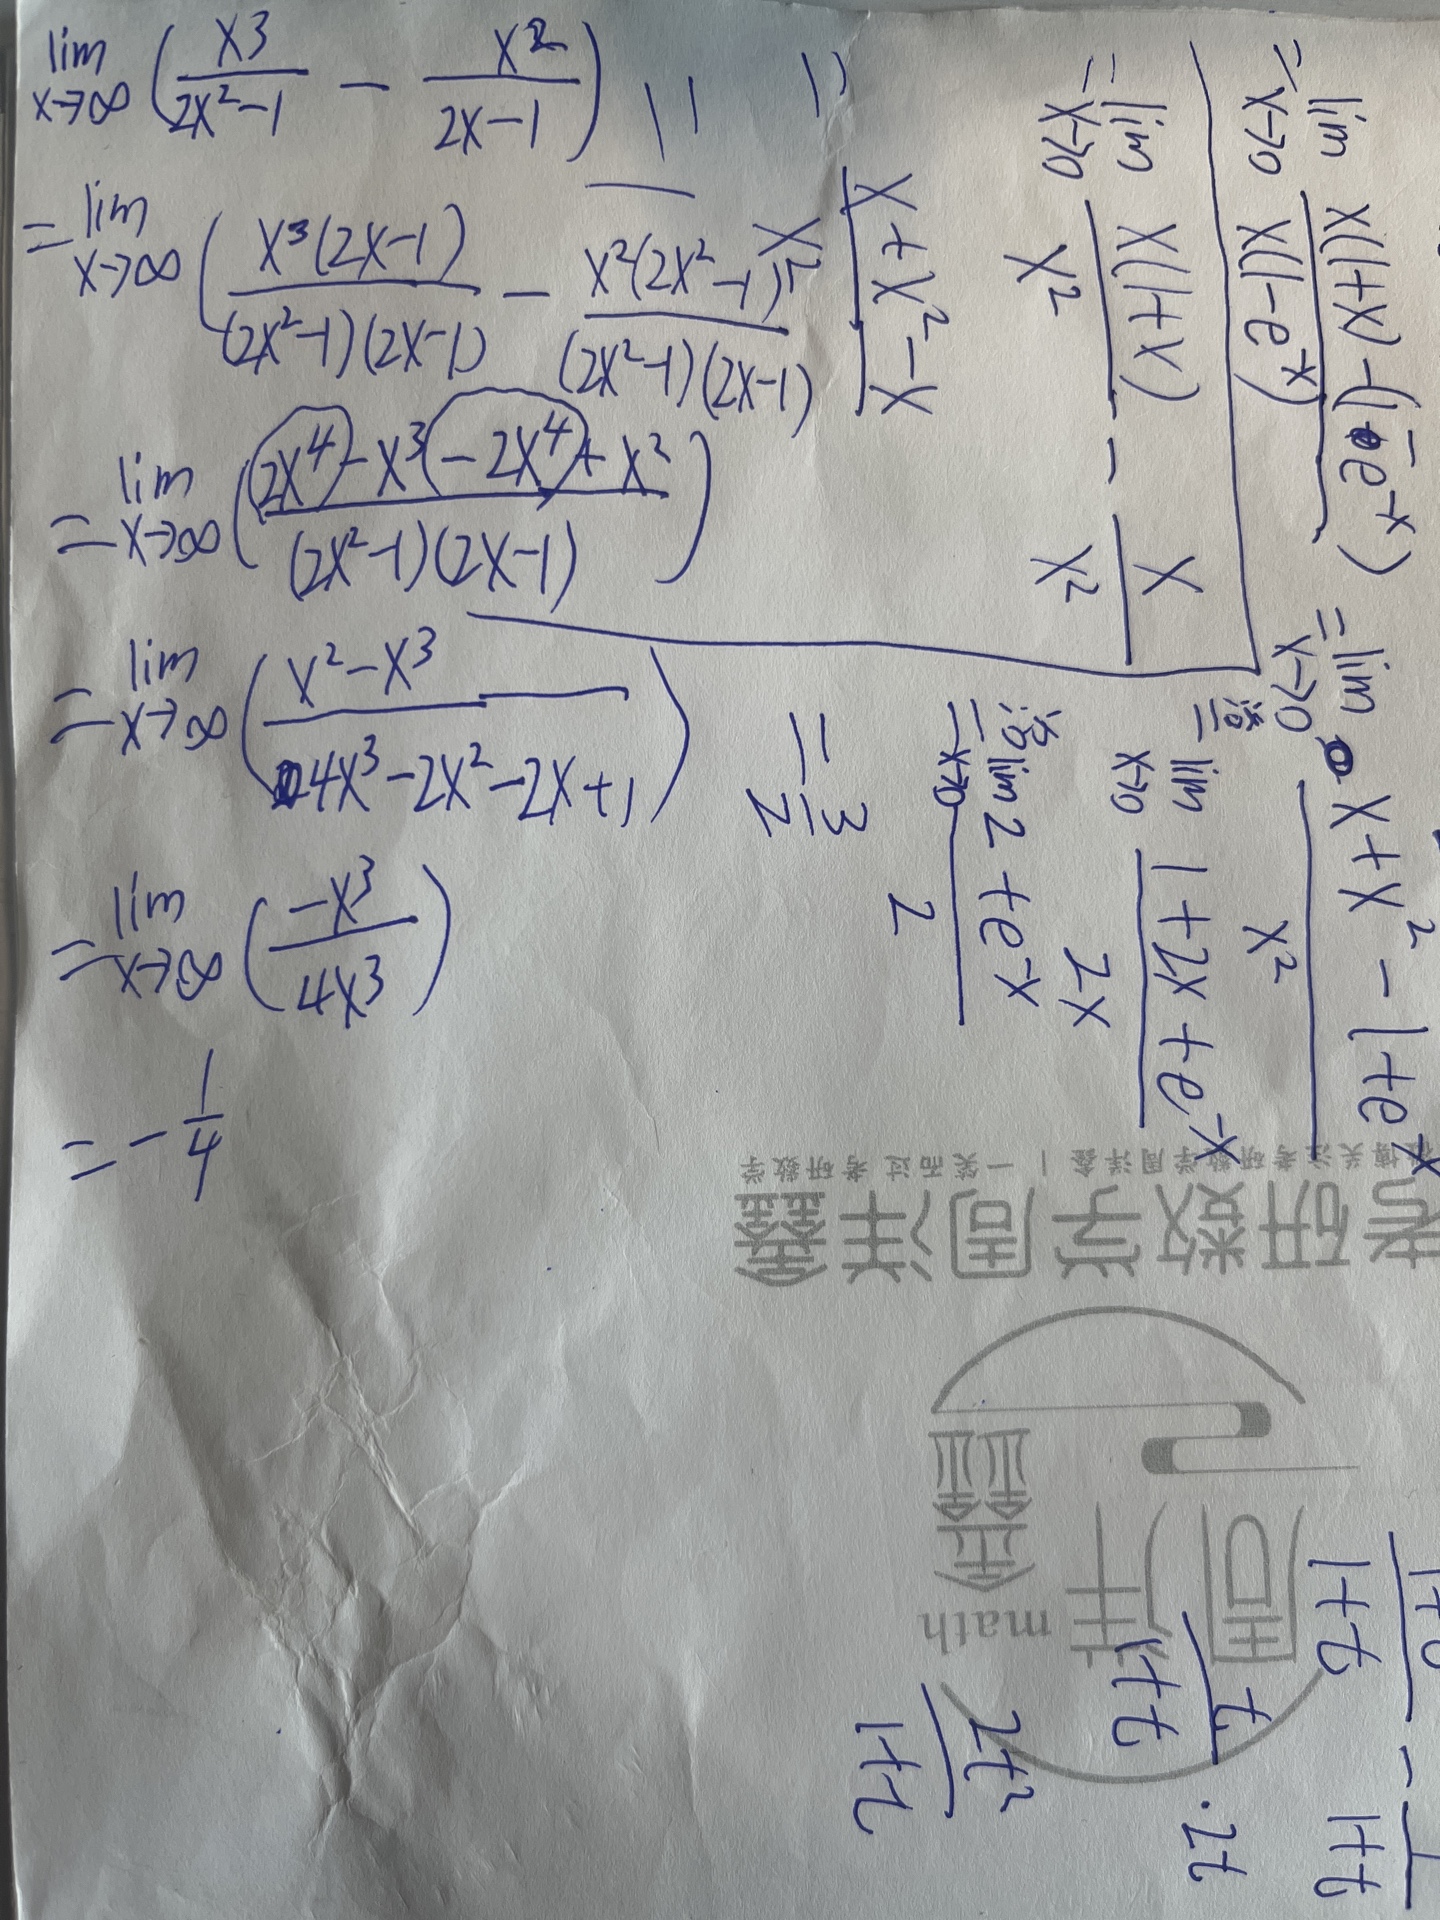 lim x→∞ (x3/(2x²-1) - x²/(2x-1))
= lim x→∞ (x³(2x-1)/((2x²-1)(2x-1)) - x²(2x²-1)/((2x²-1)(2x-1)))
= lim x→∞ ((2x⁴-x³-2x⁴+x²)/((2x²-1)(2x-1)))
= lim x→∞ ((x²-x³)/(4x³-2x²-2x+1))
= lim x→∞ (-x³/4x³)
= -1/4
= lim x→0 (x(1+x)-(1-e⁻ˣ))/(x(1-e⁻ˣ))
= lim x→0 (x+x²-1+e⁻ˣ)/x²
洛= lim x→0 (1+2x+e⁻ˣ)/2x
洛= lim x→0 (2+e⁻ˣ)/2
= 3/2
= lim x→0 x(1+x)/x² - x/x²
= (x+x²-x)/x²
考研数学周洋鑫
关注考研数学周洋鑫 | 一笑而过 考研数学
周洋鑫
math
t/(1+t) · 2t
2t²/(1+t)